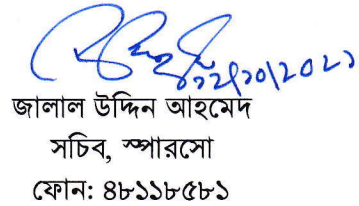 ১২/১০/২০২১
জালাল উদ্দিন আহমেদ
সচিব, স্পারসো
ফোন: ৪৮১১৮৫৮১